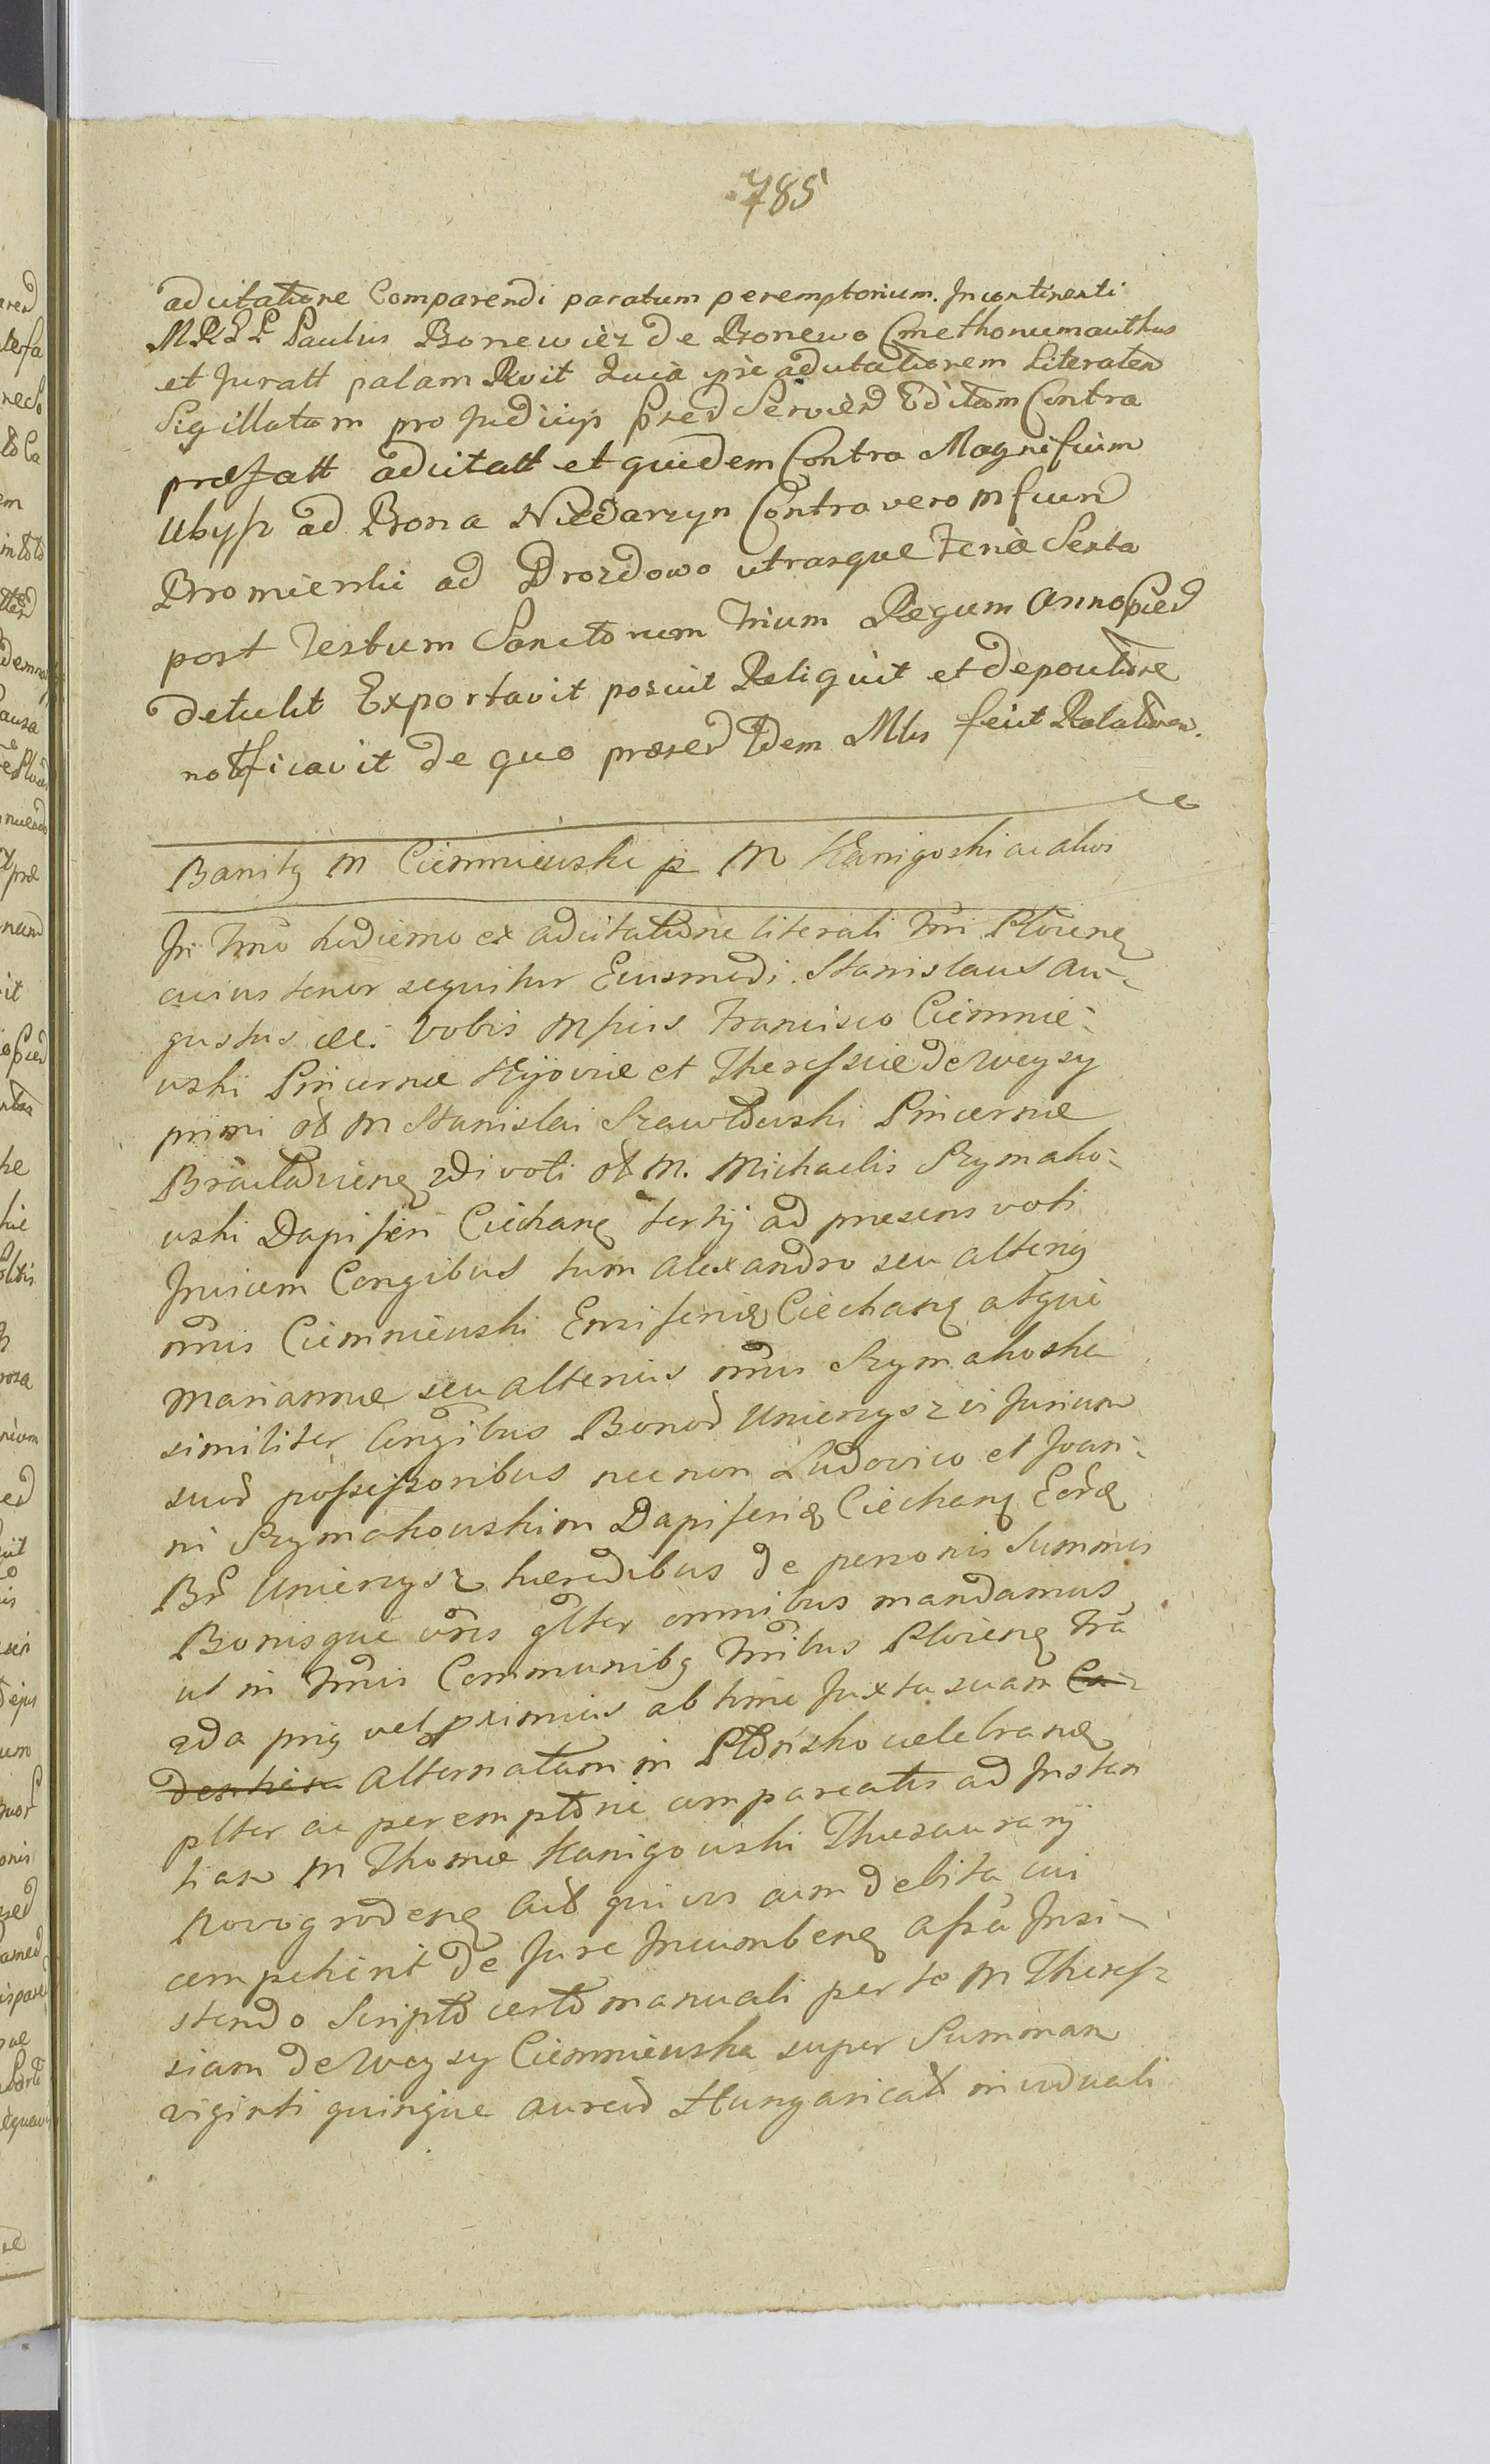 785
adcitatione Comparendi paratum peremptorium. Incontinenti
Paulus Bonewicz de Bonewo Cmethonum
et Juratt palam quia ipse adcitationem Literalem
Sigillatam pro Judicijs Pred Editam Contra
præfatt adcitatt et quidem Contra Magnificum
ad Bona Niedarzyn Contra vero Mficum
Bromierski ad Drozdowo utrasque Feria Sexta
post Festum Sanctorum Trium Regum Anno
detulit Exportavit posuit Reliquit et de positione
notificavit de quo præsed Idem Mlis fecit Relationem.
Banitz M Ciemniewski p M Kanigoski ac alios
In Tmo hodierno ex adcitatione literali Tmi Plocieng
cuius tenor sequitur Eiusmodi. Stanislaus Au-
gustus &c. Vobis Mficis Francisco Ciemnie-
wski Pincernæ Kijoviæ et Theressiæ de Weysy
primi ol M Stanislai Szawłowski Pincernæ
Bracławieng 2di voti ol M. Michaelis Szymako-
wski Dapiferi Ciechang tertij ad præsens voti
Invicem Congibus tum Alexandro seu alterig
nmis Ciemniewski Ensiferig Ciechang atque
Mariannæ seu alterius nmis Szymakoska
similiter Congibus Bonor Unierzysz vi Jurium
suor possessoribus nec non Ludovico et Joan-
ni Szymakowskim Dapiferig Ciechang Eordg
Br Unierzysz hæredibus de personis Summis
Bonisque vris glter omnibus mandamus
ut in Tmis Communibg Tmibus Plocieng Fra
2da prig vel proximius ab hinc Juxta suam Ca-
dentiam Alternatam in Płońsko celebrang
plter ac peremptorie compareatis ad Instan
tiam M Thomæ Kanigowski Thesaurarij
Novogrodeng Aut qui vis cum debita cui
competierit de Jure Incumbeng Assa Insi-
stendo Scripto certo manuali per te M Theres-
siam de Weysy Ciemniewska super Summam
viginti quinque aureor Hungaricalt individuali